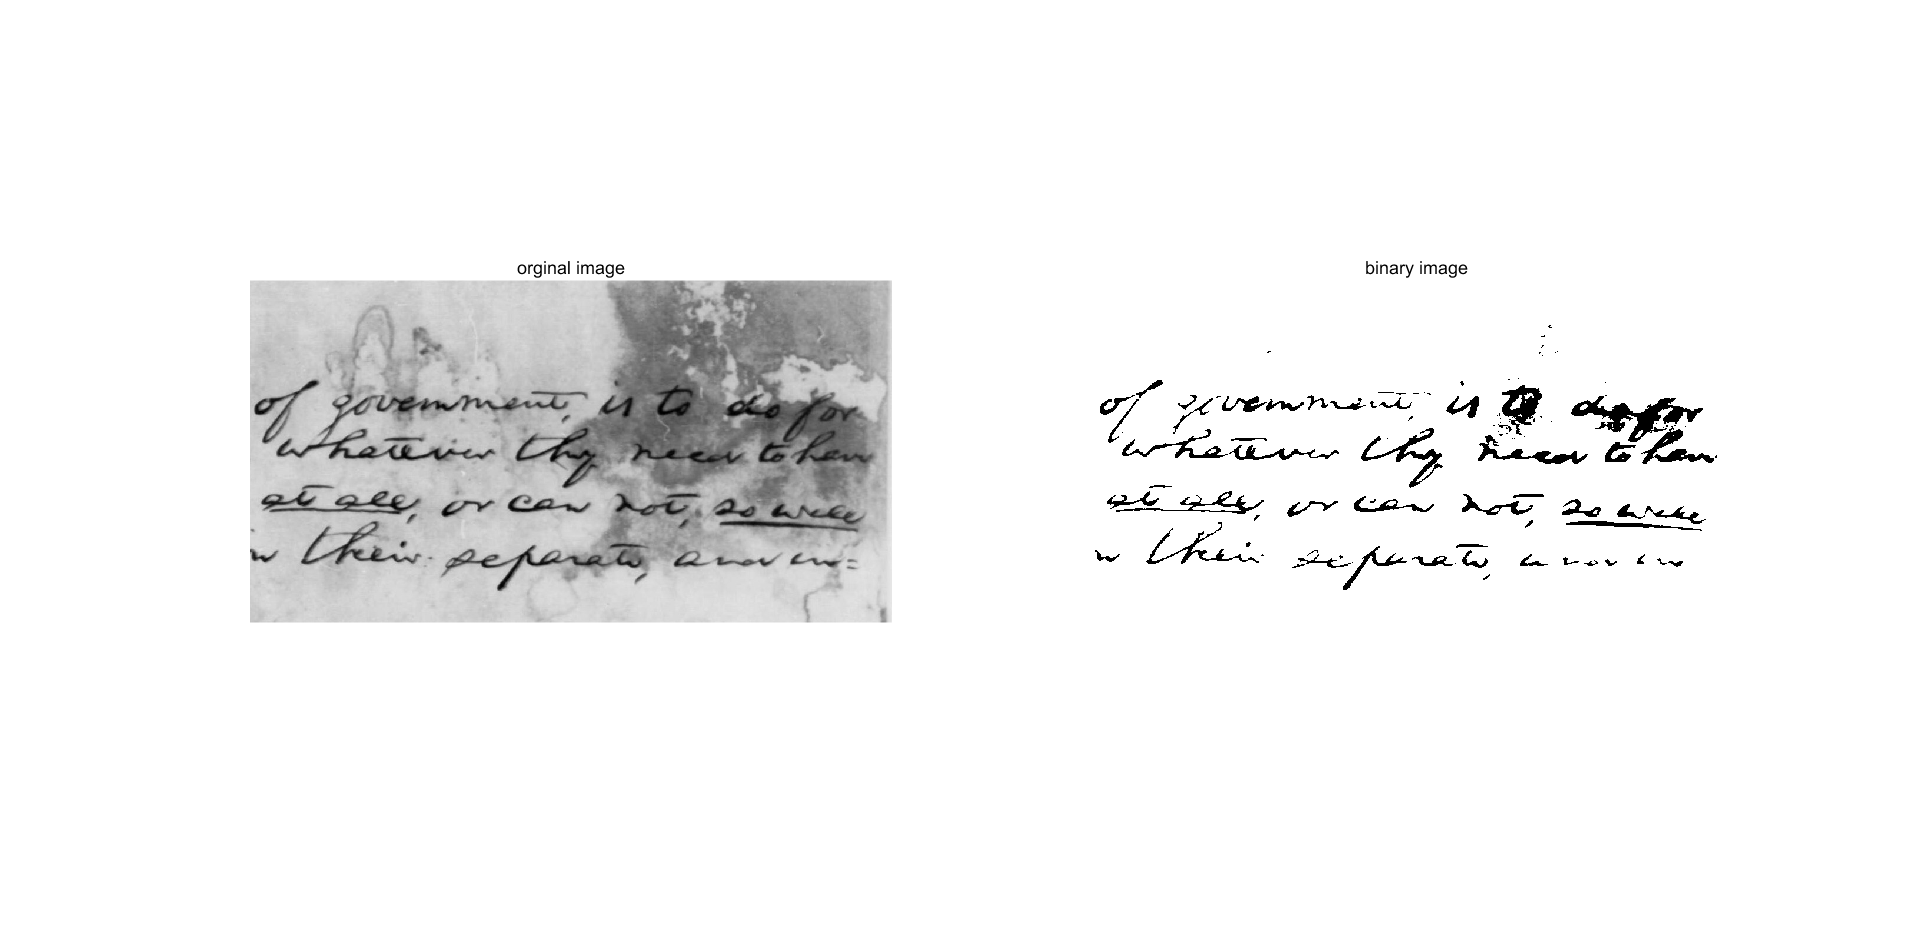 orginal image
of government, is to do for
whatever they need to have
at all, or can not, so well
in their separate, and in=
binary image
of government, is to do for
whatever they need to have
at all, or can not, so well
in their separate, and in